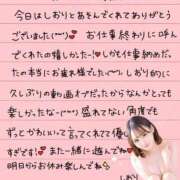 今日はしおりとあそんでくれてありがとう
ございました(´˘`)💕 お仕事終わりに呼ん
でくれたの嬉しかったー!♡しかも仕事納めだ。
たの本当にお疲れ様でした(´˘`)しおり的に
久しぶりの動画オプだったからなんかとっても
楽しかったなー(´˘`)盛れてない角度でも
ずっとかわいって言ってくれて優し
すぎです!💕また一緒に遊んでね♡
明日からお休み楽しんでね
しおり